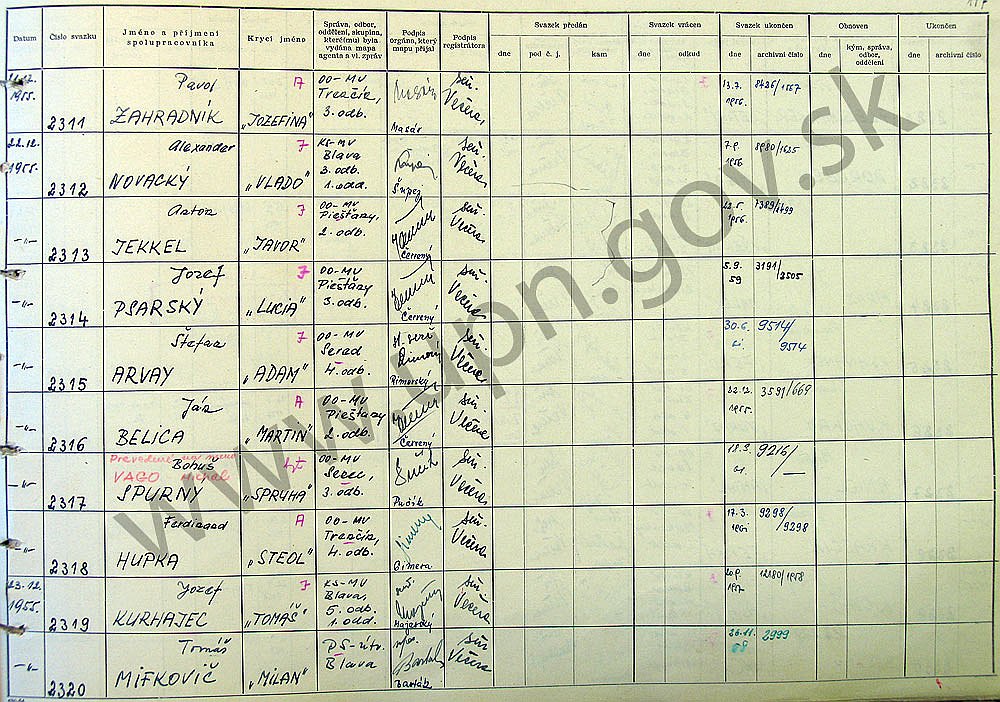 Datum
Číslo svazku
Jméno a příjmení
spolupracovníka
Krycí jméno
Správa, odbor,
oddělení, skupina,
které(mu) byla
vydána mapa
agenta a vl. zpráv
Podpis
orgánu, který
mapu přijal
Podpis
registrátora
Svazek předán
dne
pod č. j.
kam
Svazek vrácen
dne
odkud
Svazek ukončen
dne
archivní číslo
Obnoven
dne
kým, správa,
odbor,
oddělení
Ukončen
dne
archivní číslo
1955.
2311
Pavol
ZAHRADNÍK
A
"JOZEFÍNA"
OO-MV
Trenčín,
3. odb.
Masár
Večeřa
13.7.
1956.
8426/1567
22.12.
1955.
2312
Alexander
NOVACKÝ
7
"VLADO"
KS-MV
Blava
3. odb.
1. odd.
Šupej
Večeřa
1956
8980/1625
-"-
2313
Anton
JEKKEL
7
"JAVOR"
OO-MV
Piešťany,
2. odb.
Červený
Večeřa
1956.
-"-
2314
Jozef
PSARSKÝ
7
"LUCIA"
OO-MV
Piešťany
3. odb.
Červený
Večeřa
5.9.
59
3191/
3505
-"-
2315
Štefan
ARVAY
7
"ADAM"
OO-MV
Sereď
4. odb.
Rimovský
Večeřa
30.6.
9514/
9514
-"-
2316
Ján
BELICA
A
"MARTIN"
OO-MV
Piešťany
2. odb.
Červený
Večeřa
22.12.
1955.
3591/669
-"-
2317
Prevedené na meno
VAGO Michal
Bohuš
SPURNÝ
"SPRUHA"
OO-MV
Sereď,
3. odb.
Večeřa
18.3.
9216/—
-"-
2318
Ferdinand
HUPKA
A
"STEOL"
OO-MV
Trenčín,
4. odb.
Gimera
Večeřa
17.3.
9298/
9298
23.12.
1955.
2319
Jozef
KURHAJEC
7
"TOMÁŠ"
KS-MV
Blava,
5. odb.
1. odd.
Majerský
Večeřa
12180/1958
-"-
2320
Tomáš
MIFKOVIČ
"MILAN"
PS-útv.
Blava
Barták
Večeřa
26.11.
68
2999
www.upn.gov.sk